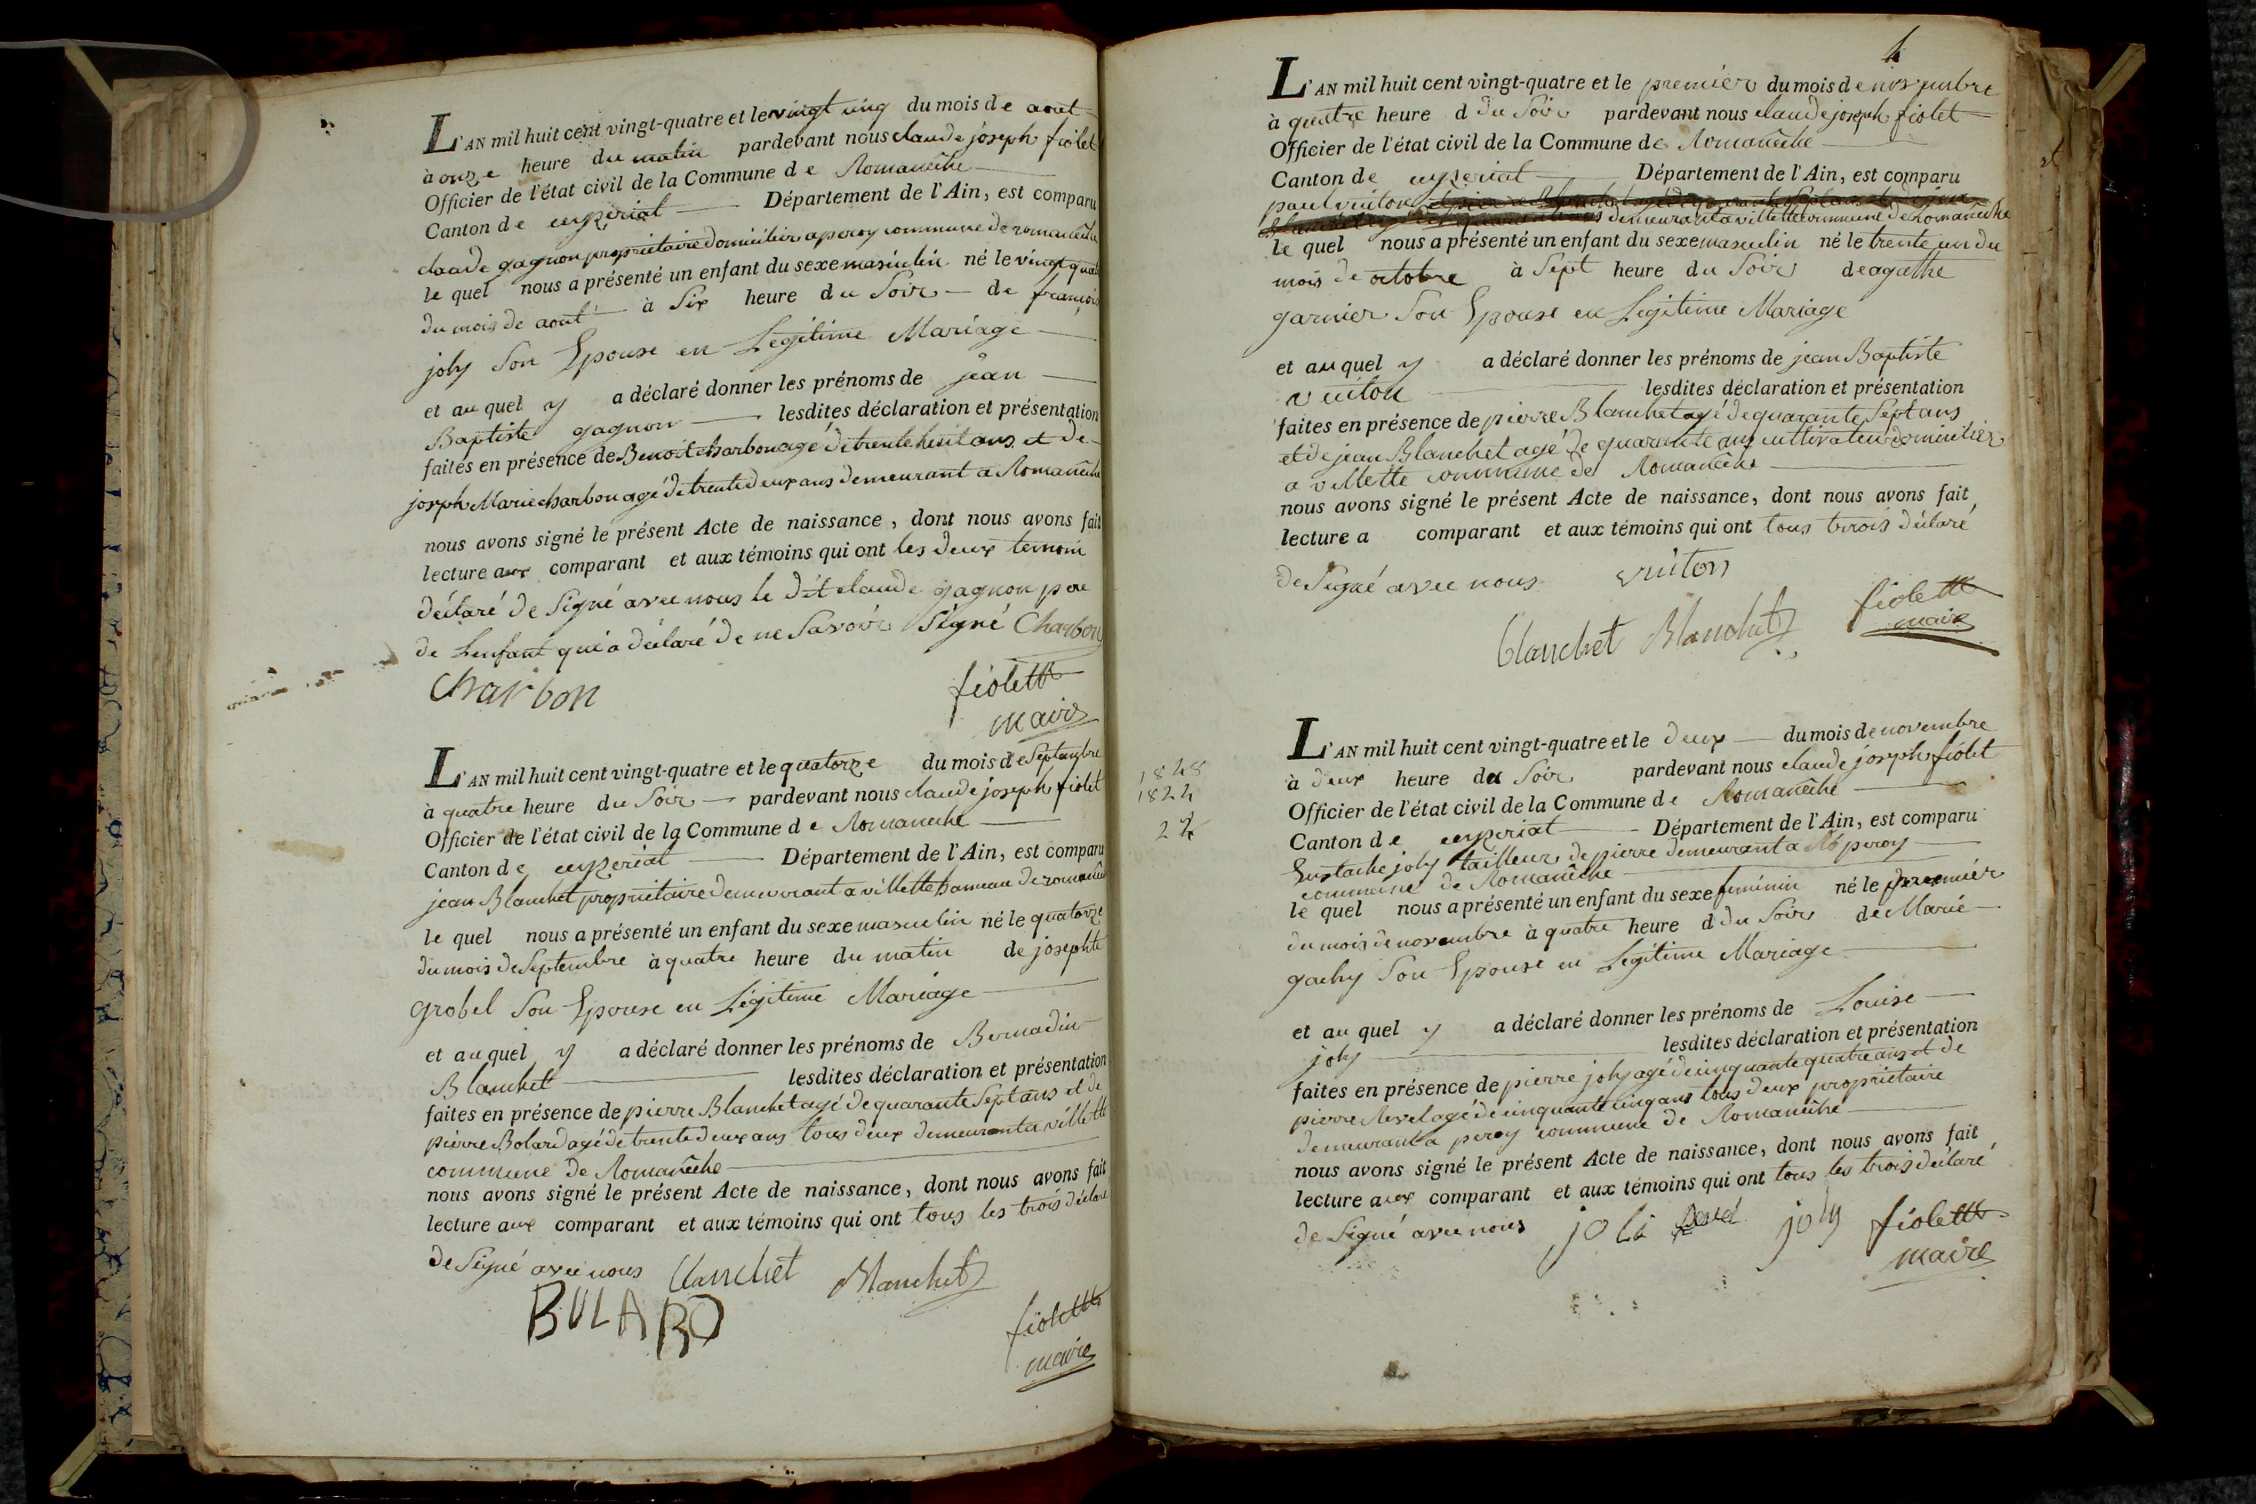 L'AN mil huit cent vingt-quatre et le vingt cinq du mois de aout
à onze heure du matin pardevant nous claude joseph fiolet
Officier de l'état civil de la Commune de Romanêche
Canton de ceyzeriat Département de l'Ain, est comparu
claude gagnon proprietaire domicilier a peroy commune de romanêche
le quel nous a présenté un enfant du sexe masculin né le vingt quatre
du mois de aout à Six heure du Soir de françoise
joly Son Epouse en Legitime Mariage
et au quel y a déclaré donner les prénoms de jean
Baptiste gagnon lesdites déclaration et présentation
faites en présence de Benoit charbon agé de trente huit ans et de
joseph Marie charbon agé de trente deux ans demeurant a Romanêche
nous avons signé le présent Acte de naissance, dont nous avons fait
lecture aux comparant et aux témoins qui ont les deux temoin
déclaré de Signé avec nous le dit claude gagnon pere
de Lenfant qui a déclaré de ne Savoir Signé Charbon
Charbon fiolett
maire
L'AN mil huit cent vingt-quatre et le quatorze du mois de Septambre
à quatre heure du Soir pardevant nous claude joseph fiolet
Officier de l'état civil de la Commune de Romanêche
Canton de ceyzeriat Département de l'Ain, est comparu
jean Blanchet proprietaire demeurant a villette hameau de romanêche
le quel nous a présenté un enfant du sexe masculin né le quatorze
du mois de Septembre à quatre heure du matin de josephte
grobel Son Epouse en Légitime Mariage
et au quel y a déclaré donner les prénoms de Bernadin
Blanchet lesdites déclaration et présentation
faites en présence de pierre Blanchet agé de quarante Sept ans et de
pierre Bolard agé de trente deux ans tous deux demeurant a villette
commune de Romanêche
nous avons signé le présent Acte de naissance, dont nous avons fait
lecture aux comparant et aux témoins qui ont tous les trois déclaré
de Signé avec nous Blanchet Blanchet
BOLARD
fiolett
maire
1848
1824
24
L'AN mil huit cent vingt-quatre et le premier du mois de novembre
à quatre heure d du Soir pardevant nous claude joseph fiolet
Officier de l'état civil de la Commune de Romanêche
Canton de ceyzeriat Département de l'Ain, est comparu
paul vuiton
demeurant a villette commune de Romanêche
le quel nous a présenté un enfant du sexe masculin né le trente un du
mois de octobre à Sept heure du Soir de agathe
garnier Son Epouse en Legitime Mariage
et au quel y a déclaré donner les prénoms de jean Baptiste
vuiton lesdites déclaration et présentation
faites en présence de pierre Blanchet agé de quarante Sept ans
et de jean Blanchet agé de quarante ans cultivateur domicilier
a villette commune de Romanêche
nous avons signé le présent Acte de naissance, dont nous avons fait
lecture a comparant et aux témoins qui ont tous trois déclaré
de Signé avec nous vuiton
Blanchet Blanchet fiolett
maire
L'AN mil huit cent vingt-quatre et le deux du mois de novembre
à deux heure du Soir pardevant nous claude joseph fiolet
Officier de l'état civil de la Commune de Romanêche
Canton de ceyzeriat Département de l'Ain, est comparu
Eustache joly tailleur de pierre demeurant a peroy
commune de Romanêche
le quel nous a présenté un enfant du sexe feminin né le premier
du mois de novembre à quatre heure d du Soir de Marie
gachy Son Epouse en Legitime Mariage
et au quel y a déclaré donner les prénoms de Louise
joly lesdites déclaration et présentation
faites en présence de pierre joly agé de cinquante quatre ans et de
pierre Revel agé de cinquante cinq ans tous deux proprietaire
demeurant a peroy commune de Romanêche
nous avons signé le présent Acte de naissance, dont nous avons fait
lecture aux comparant et aux témoins qui ont tous les trois déclaré
de Signé avec nous joli Revel joly fiolett
maire